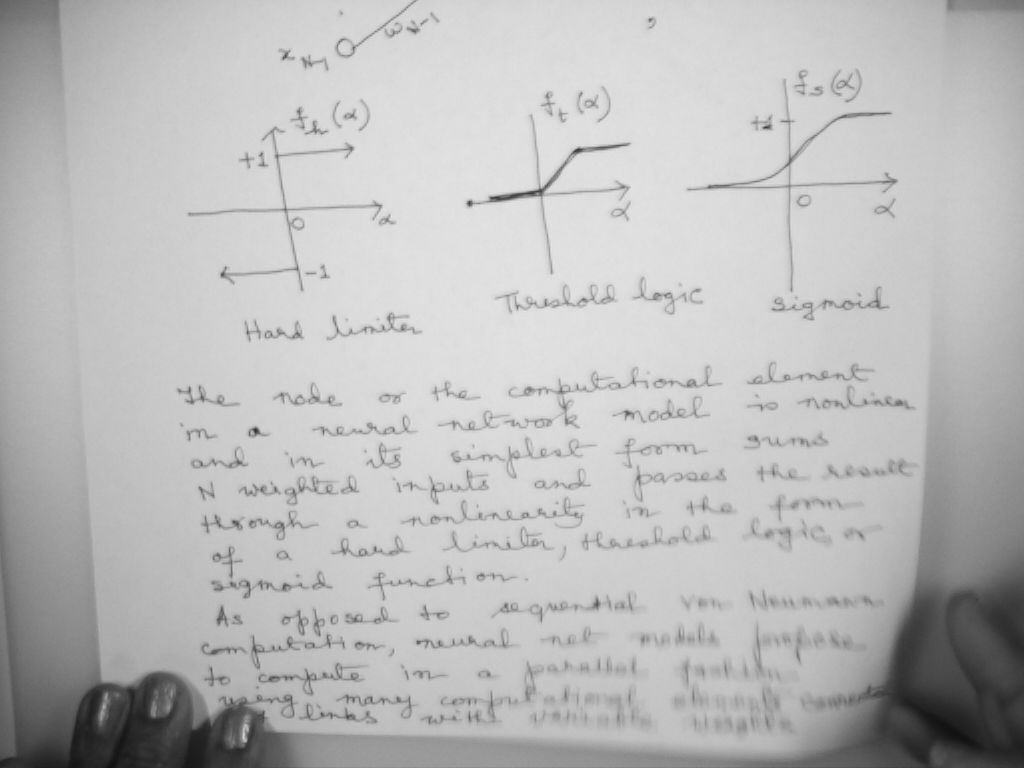 x N-1 ω N-1
f_h (α) f_t (α) f_s (α)
+1 +1
α 0 α 0 α
-1
Hard limiter Threshold logic sigmoid
The node or the computational element
in a neural network model is nonlinear
and in its simplest form sums
N weighted inputs and passes the result
through a nonlinearity in the form
of a hard limiter, threshold logic, or
sigmoid function.
As opposed to sequential von Neumann
computation, neural net models propose
to compute in a parallel fashion
using many computational elements connected
links with variable weights